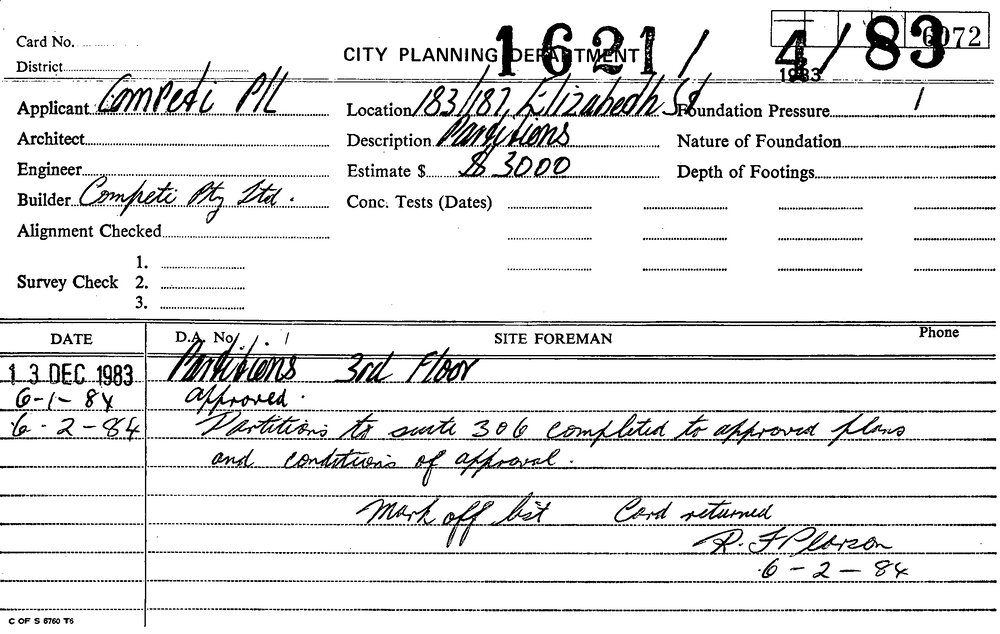 6072
Card No.
District
CITY PLANNING DEPARTMENT
1621/ 4/83
1983
Applicant Competi P/L
Location 183/187 Elizabeth St
Foundation Pressure
Architect
Description Partitions
Nature of Foundation
Engineer
Estimate $ $ 3000
Depth of Footings
Builder Competi Pty Ltd.
Conc. Tests (Dates)
Alignment Checked
Survey Check 1.
2.
3.
DATE D.A. No. SITE FOREMAN Phone
13 DEC 1983 Partitions 3rd Floor
6-1-84 approved.
6-2-84 Partitions to suite 306 completed to approved plans
and conditions of approval.
Mark off list Card returned
R. F Pearson
6-2-84
C OF S 6760 T6